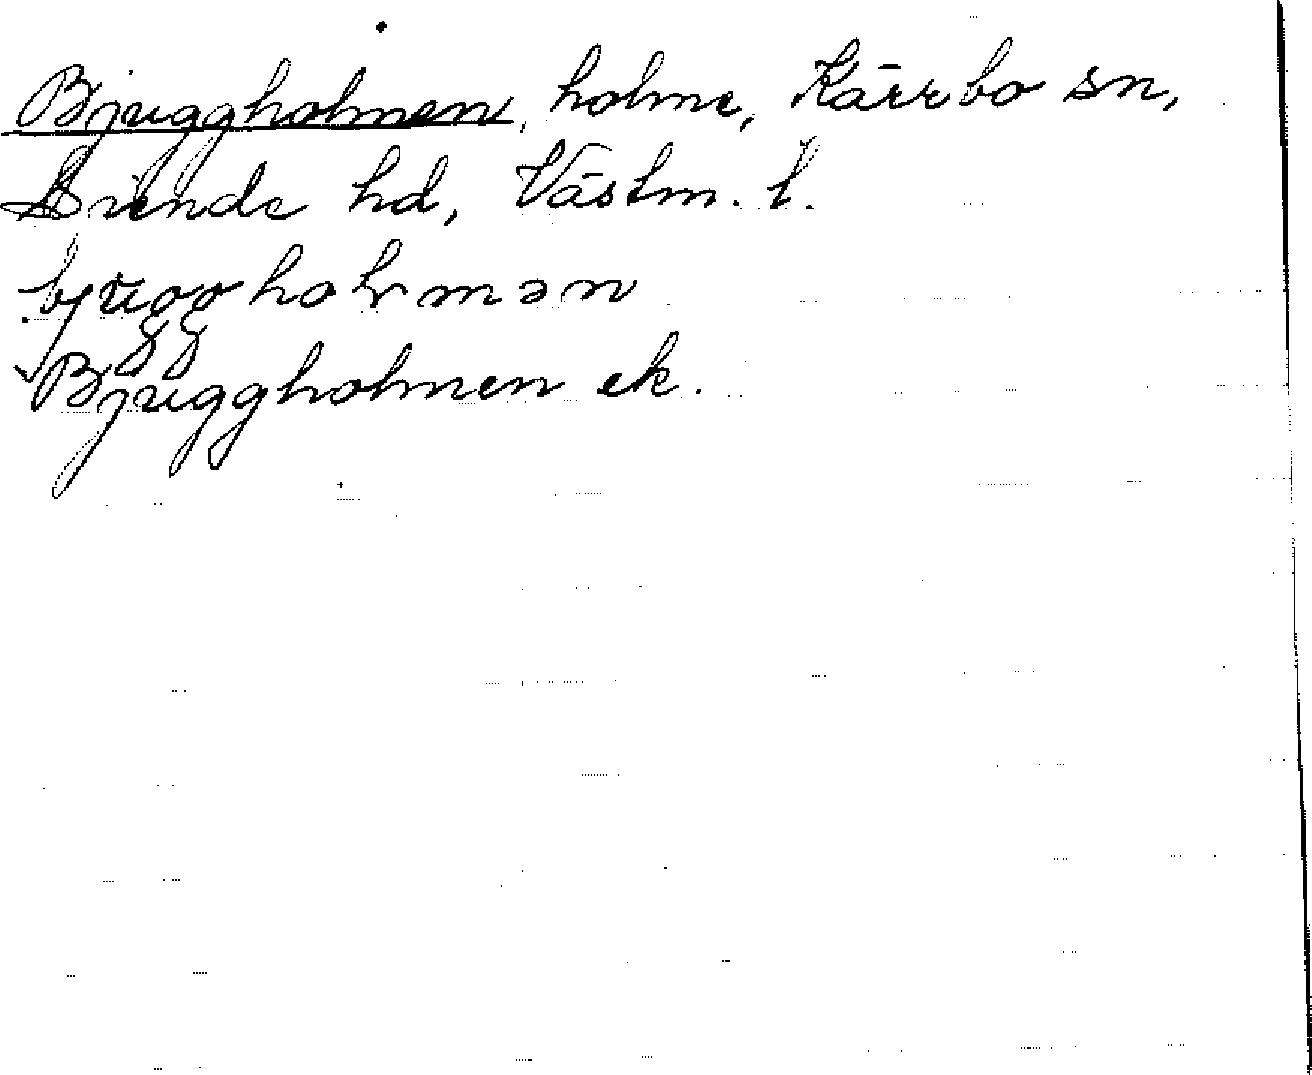 Bjuggholmen, holme, Kärrbo sn,
Siende hd, Västm. l.
bjuggholmən
Bjuggholmen ek.